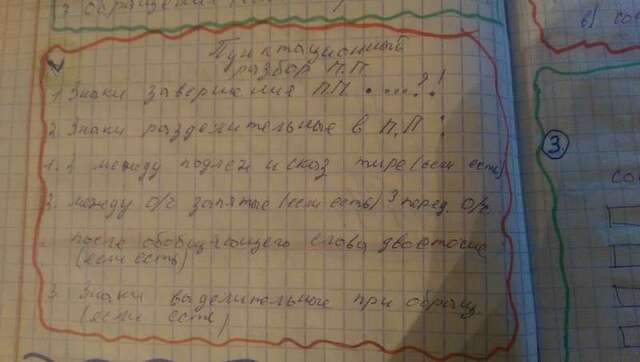 ? обращения
Пунктационный
разбор П.П
1. Знаки завершения П.П . ... ? !
2. Знаки разделительные в П.П :
1. между подлеж и сказ тире (если есть)
2. между о/ч запятые (если есть) перед о/ч
после обобщающего слова двоеточие
(если есть)
3. Знаки выделительные при обращ.
(если есть)
в)
3.